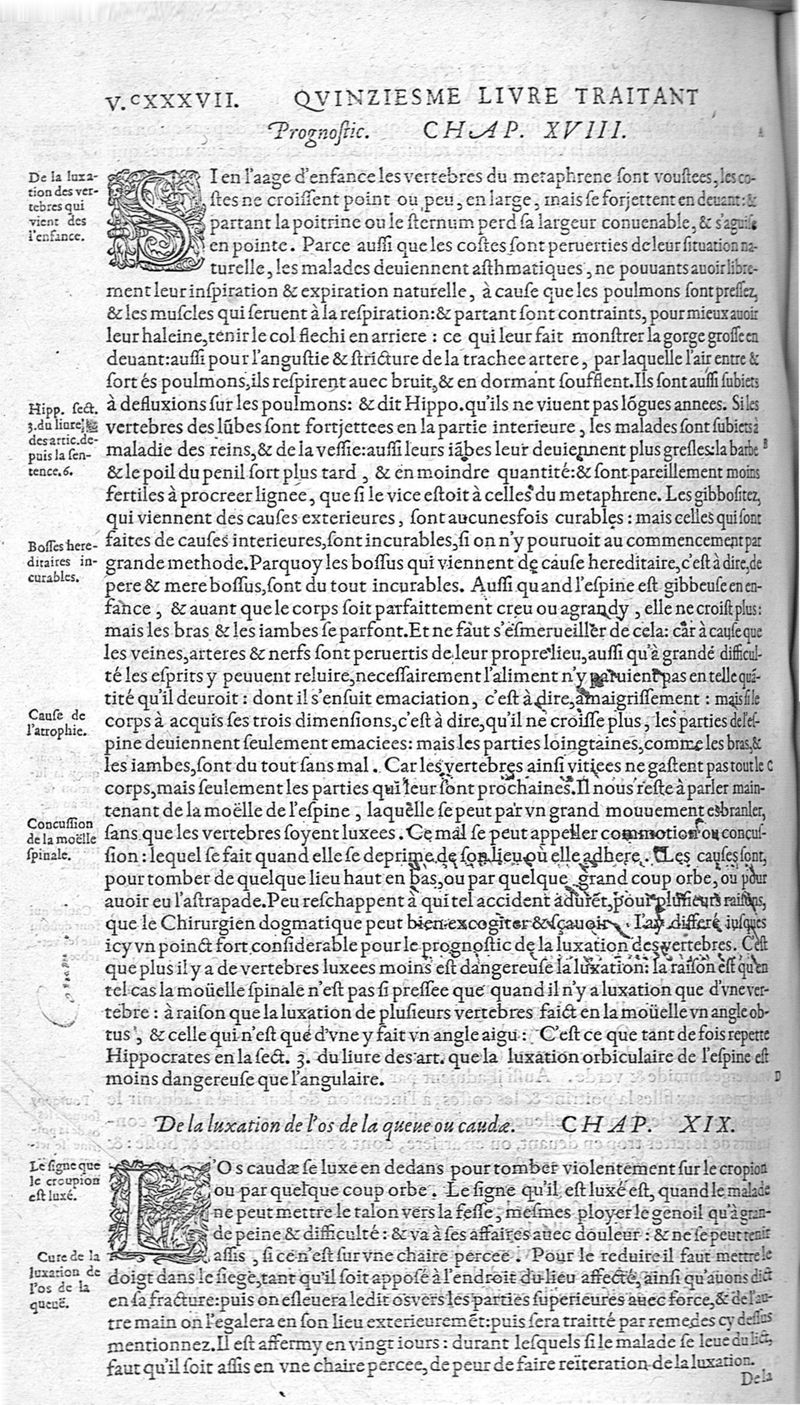 V.CXXXVII. QVINZIESME LIVRE TRAITANT
Prognostic. CHAP. XVIII.
De la luxa-
tion des ver-
tebres qui
vient des
l'enfance.
SI en l'aage d'enfance les vertebres du metaphrene sont voustees, les co-
stes ne croissent point ou peu, en large, mais se forjettent en deuant: &
partant la poitrine ou le sternum perd sa largeur conuenable, & s'aguise
en pointe. Parce aussi que les costes sont peruerties de leur situation na-
turelle, les malades deuiennent asthmatiques, ne pouuants auoir libre-
ment leur inspiration & expiration naturelle, à cause que les poulmons sont pressez,
& les muscles qui seruent à la respiration: & partant sont contraints, pour mieux auoir
leur haleine, tenir le col flechi en arriere : ce qui leur fait monstrer la gorge grosse en
deuant: aussi pour l'angustie & stricture de la trachee artere, par laquelle l'air entre &
sort és poulmons, ils respirent auec bruit, & en dormant soufflent. Ils sont aussi subiets
Hipp. sect.
3. du liure
des artic. de-
puis la sen-
tence. 6.
à defluxions sur les poulmons: & dit Hippo. qu'ils ne viuent pas lõgues annees. Si les
vertebres des lũbes sont fortjettees en la partie interieure, les malades sont subiets à
maladie des reins, & de la vessie: aussi leurs iãbes leur deuiennent plus gresles: la barbe B
& le poil du penil sort plus tard, & en moindre quantité: & sont pareillement moins
fertiles à procreer lignee, que si le vice estoit à celles du metaphrene. Les gibbositez,
qui viennent des causes exterieures, sont aucunesfois curables : mais celles qui sont
Bosses here-
ditaires in-
curables.
faites de causes interieures, sont incurables, si on n'y pouruoit au commencement par
grande methode. Parquoy les bossus qui viennent de cause hereditaire, c'est à dire, de
pere & mere bossus, sont du tout incurables. Aussi quand l'espine est gibbeuse en en-
fance, & auant que le corps soit parfaittement creu ou agrandy, elle ne croist plus:
mais les bras & les iambes se parfont. Et ne faut s'esmerueiller de cela: car à cause que
les veines, arteres & nerfs sont peruertis de leur propre lieu, aussi qu'à grande difficul-
té les esprits y peuuent reluire, necessairement l'aliment n'y paruient pas en telle quã-
tité qu'il deuroit : dont il s'ensuit emaciation, c'est à dire, amaigrissement : mais si le
Cause de
l'atrophie.
corps à acquis ses trois dimensions, c'est à dire, qu'il ne croisse plus, les parties de l'es-
pine deuiennent seulement emaciees: mais les parties loingtaines, comme les bras, &
les iambes, sont du tout sans mal. Car les vertebres ainsi vitiees ne gastent pas tout le C
corps, mais seulement les parties qui leur sont prochaines. Il nous reste à parler main-
tenant de la moëlle de l'espine, laquelle se peut par vn grand mouuement esbranler,
Concussion
de la moëlle
spinale.
sans que les vertebres soyent luxees. Ce mal se peut appeller commotion ou concus-
sion : lequel se fait quand elle se deprime de son lieu où elle adhere. Les causes sont,
pour tomber de quelque lieu haut en bas, ou par quelque grand coup orbe, ou pour
auoir eu l'astrapade. Peu reschappent à qui tel accident aduient, pour plusieurs raisons,
que le Chirurgien dogmatique peut bien excogiter & sçauoir. I'ay differé jusques
icy vn poinct fort considerable pour le prognostic de la luxation des vertebres. C'est
que plus il y a de vertebres luxees moins est dangereuse la luxation: la raison est qu'en
tel cas la moüelle spinale n'est pas si pressee que quand il n'y a luxation que d'vne ver-
tebre : à raison que la luxation de plusieurs vertebres faict en la moüelle vn angle ob-
tus, & celle qui n'est que d'vne y fait vn angle aigu : C'est ce que tant de fois repette
Hippocrates en la sect. 3. du liure des art. que la luxation orbiculaire de l'espine est
moins dangereuse que l'angulaire. D
De la luxation de l'os de la queue ou caudæ. CHAP. XIX.
Le signe que
le croupion
est luxé.
LOs caudæ se luxe en dedans pour tomber violentement sur le cropion
ou par quelque coup orbe. Le signe qu'il est luxé est, quand le malade
ne peut mettre le talon vers la fesse, mesmes ployer le genoil qu'à gran-
de peine & difficulté : & va à ses affaires auec douleur : & ne se peut tenir
Cure de la
luxation de
l'os de la
queuë.
assis, si ce n'est sur vne chaire percee. Pour le reduire il faut mettre le
doigt dans le siege, tant qu'il soit apposé à l'endroit du lieu affecté, ainsi qu'auons dict
en sa fracture: puis on esleuera ledit os vers les parties superieures auec force, & de l'au-
tre main on l'egalera en son lieu exterieuremẽt: puis sera traitté par remedes cy dessus
mentionnez. Il est affermy en vingt iours : durant lesquels si le malade se leue du lict,
faut qu'il soit assis en vne chaire percee, de peur de faire reïteration de la luxation.
De la